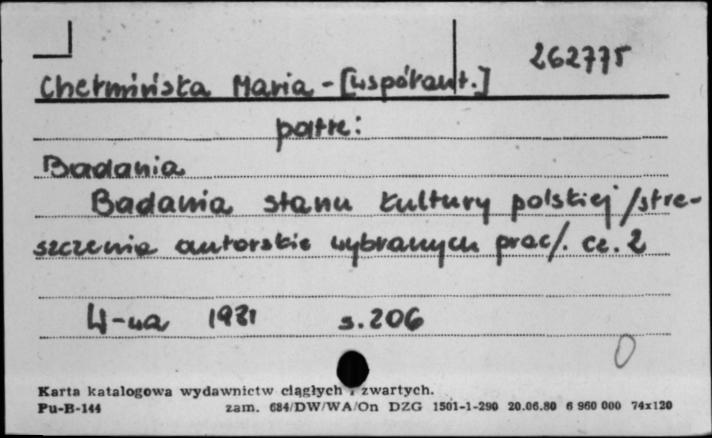 262775
Chełmińska Maria - [współaut.]
patrz:
Badania
Badania stanu kultury polskiej /stre-
szczenia autorskie wybranych prac/. cz. 2
W-wa 1981 s. 206
0
Karta katalogowa wydawnictw ciągłych i zwartych.
Pu-B-144 zam. 684/DW/WA/On DZG 1501-1-290 20.06.80 6 960 000 74x120